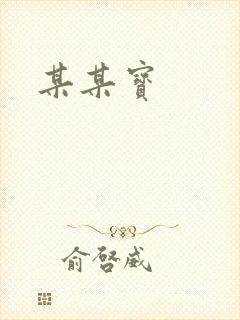 某某寶
俞啓威